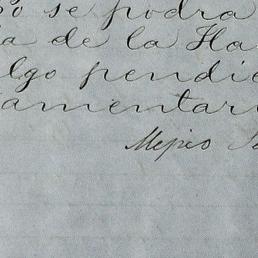 se podra
a de la Ha
lgo pendie
amentari
Mejico